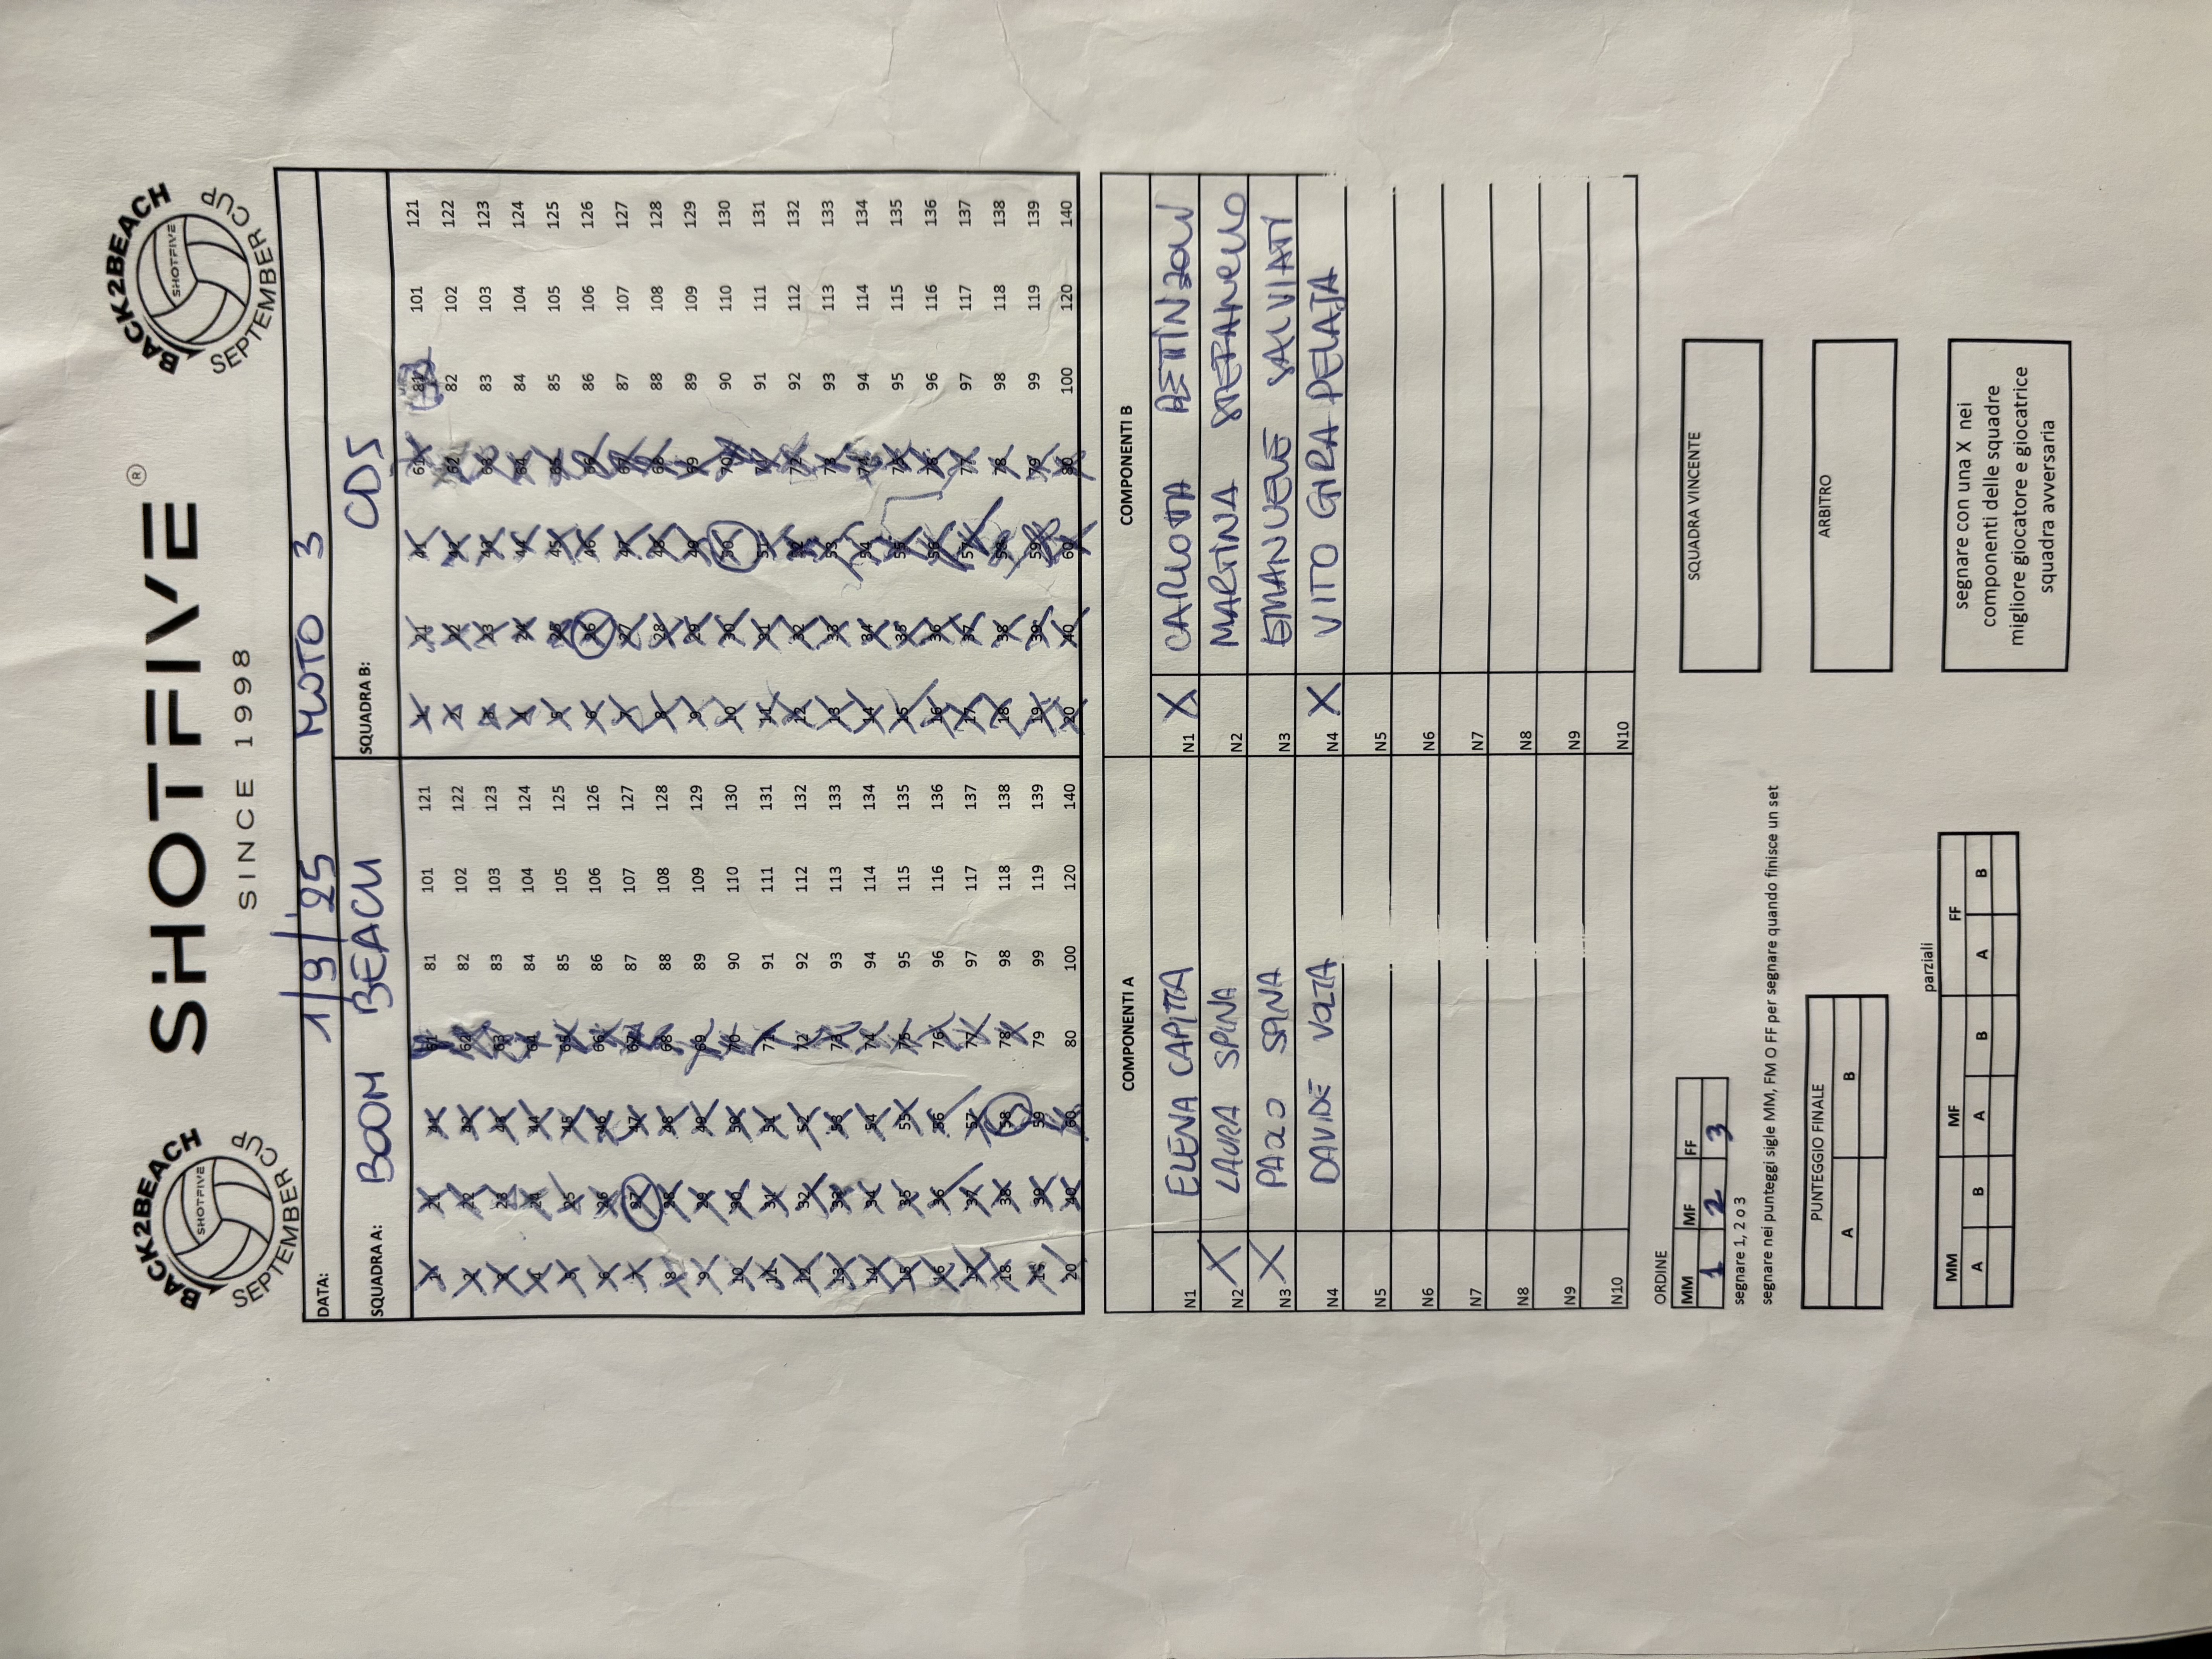 BACK2BEACH
SHOTFIVE
SEPTEMBER CUP
SHOTFIVE®
SINCE 1998
BACK2BEACH
SHOTFIVE
SEPTEMBER CUP
DATA: 1/9/25 MOTO 3
SQUADRA A: BOOM BEACH
SQUADRA B: CDS
1 21 41 61 81 101 121 1 21 41 61 81 101 121
2 22 42 62 82 102 122 2 22 42 62 82 102 122
3 23 43 63 83 103 123 3 23 43 63 83 103 123
4 24 44 64 84 104 124 4 24 44 64 84 104 124
5 25 45 65 85 105 125 5 25 45 65 85 105 125
6 26 46 66 86 106 126 6 26 46 66 86 106 126
7 27 47 67 87 107 127 7 27 47 67 87 107 127
8 28 48 68 88 108 128 8 28 48 68 88 108 128
9 29 49 69 89 109 129 9 29 49 69 89 109 129
10 30 50 70 90 110 130 10 30 50 70 90 110 130
11 31 51 71 91 111 131 11 31 51 71 91 111 131
12 32 52 72 92 112 132 12 32 52 72 92 112 132
13 33 53 73 93 113 133 13 33 53 73 93 113 133
14 34 54 74 94 114 134 14 34 54 74 94 114 134
15 35 55 75 95 115 135 15 35 55 75 95 115 135
16 36 56 76 96 116 136 16 36 56 76 96 116 136
17 37 57 77 97 117 137 17 37 57 77 97 117 137
18 38 58 78 98 118 138 18 38 58 78 98 118 138
19 39 59 79 99 119 139 19 39 59 79 99 119 139
20 40 60 80 100 120 140 20 40 60 80 100 120 140
COMPONENTI A COMPONENTI B
N1 ELENA CAPITTA N1 X CARLOTTA
N2 X LAURA SPINA N2 MARTINA STEFANELLO
N3 X PAOLO SPINA N3 EMANUELE SALVIATI
N4 DAVIDE VOLTA N4 X VITO GIRA PELAJA
N5 N5
N6 N6
N7 N7
N8 N8
N9 N9
N10 N10
ORDINE
MM MF FF
1 2 3
segnare 1, 2 o 3
segnare nei punteggi sigle MM, FM O FF per segnare quando finisce un set
SQUADRA VINCENTE
PUNTEGGIO FINALE
A B
ARBITRO
parziali
MM MF FF
A B A B A B
segnare con una X nei
componenti delle squadre
migliore giocatore e giocatrice
squadra avversaria